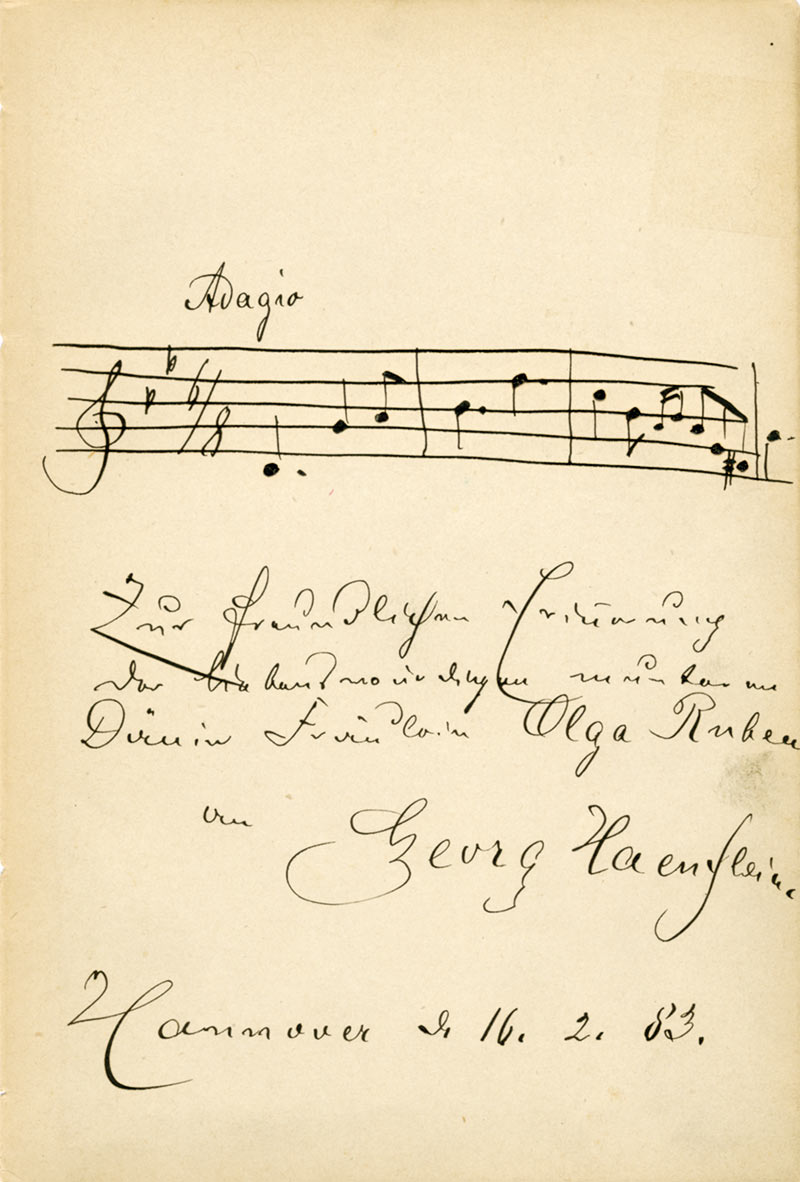 Adagio
6/8
Zur freundlichen Erinnerung
der liebenswürdigen munteren
Dänin Fräulein Olga Ruben
von
Georg Haenflein.
Hannover d. 16. 2. 83.